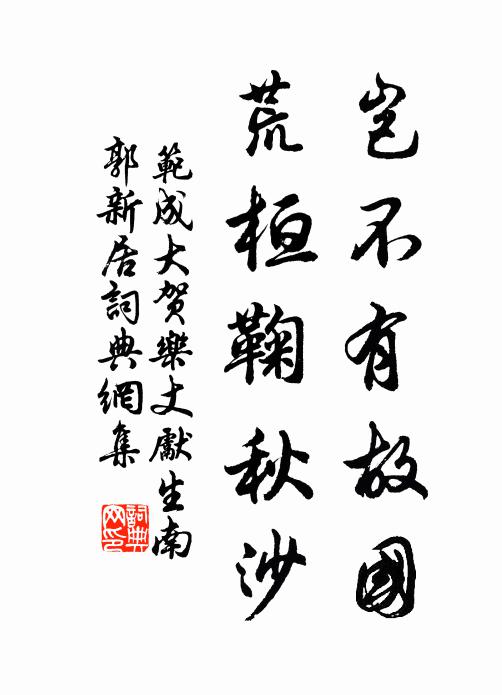 豈不有故國
荒桓鞠秋沙
範成大賀樂丈獻生南
郭新居詞典網集
詞典网印